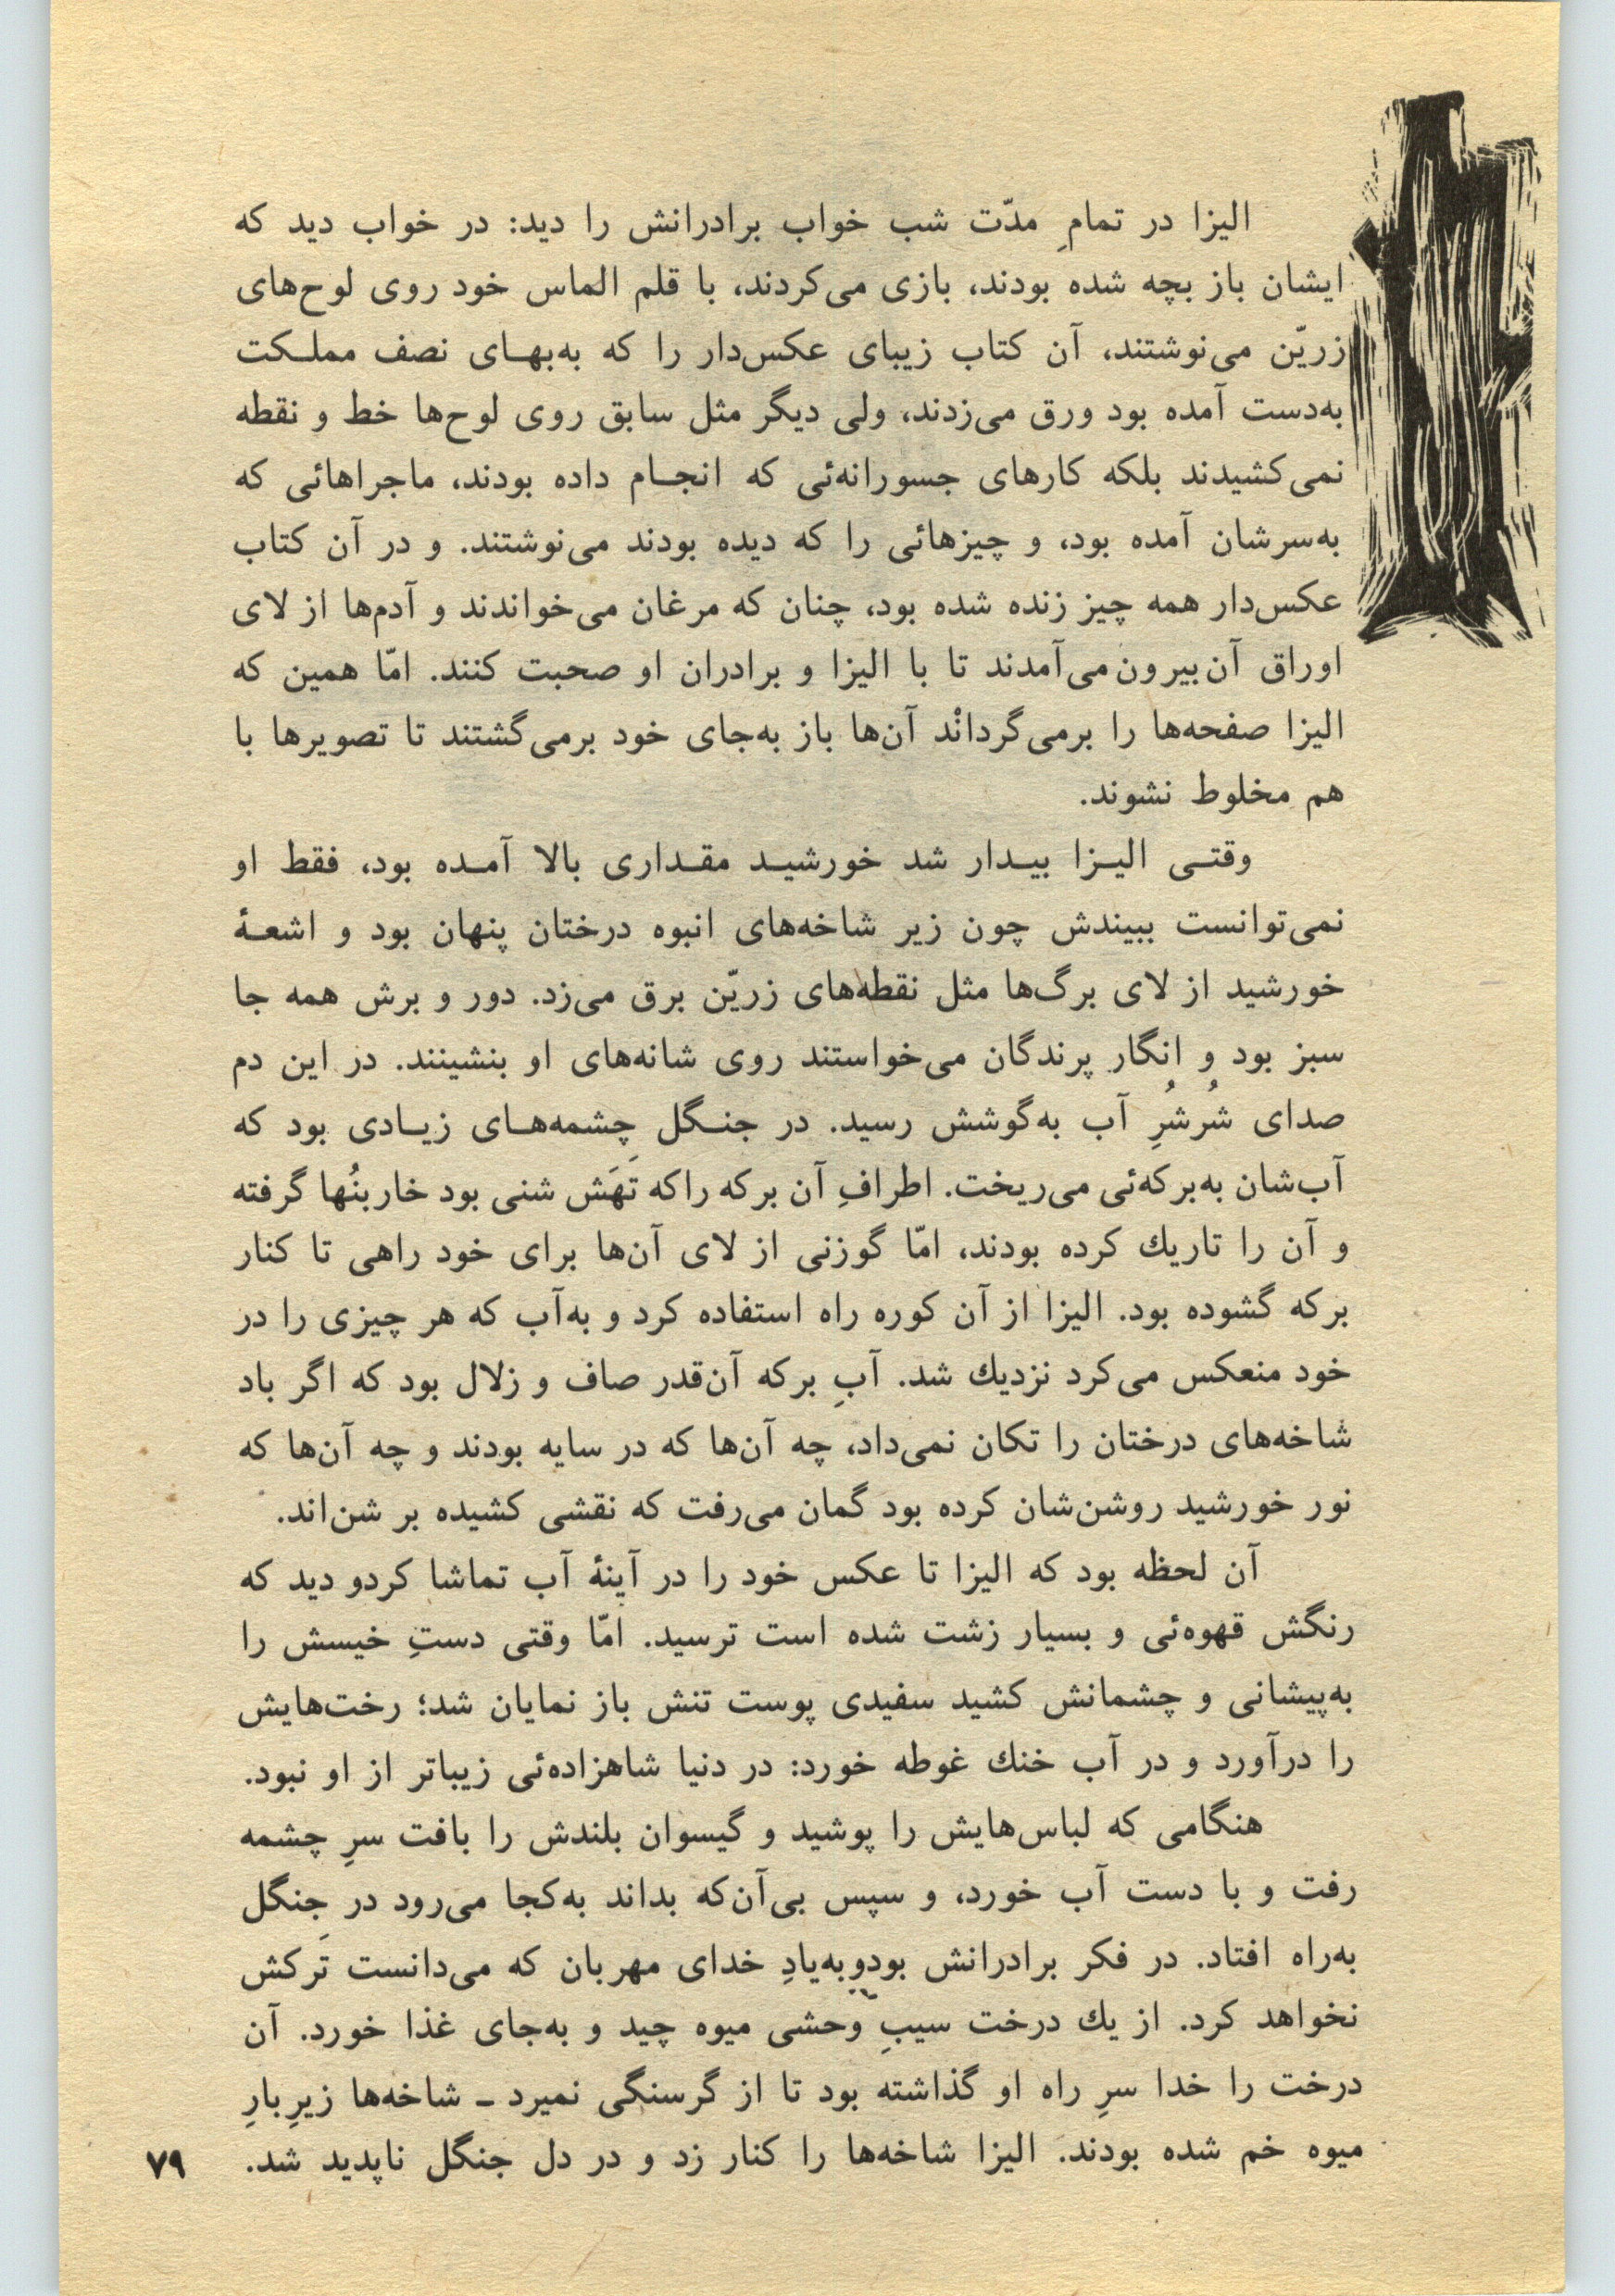 الیزا در تمامِ مدّت شب خواب برادرانش را دید: در خواب دید که
ایشان باز بچه شده بودند، بازی می‌کردند، با قلم الماس خود روی لوح‌های
زریّن می‌نوشتند، آن کتاب زیبای عکس‌دار را که به‌بهـای نصف مملـکت
به‌دست آمده بود ورق می‌زدند، ولی دیگر مثل سابق روی لوح‌ها خط و نقطه
نمی‌کشیدند بلکه کارهای جسورانه‌ئی که انجـام داده بودند، ماجراهائی که
به‌سرشان آمده بود، و چیزهائی را که دیده بودند می‌نوشتند. و در آن کتاب
عکس‌دار همه چیز زنده شده بود، چنان که مرغان می‌خواندند و آدم‌ها از لای
اوراق آن‌بیرون‌می‌آمدند تا با الیزا و برادران او صحبت کنند. امّا همین که
الیزا صفحه‌ها را برمی‌گردانْد آن‌ها باز به‌جای خود برمی‌گشتند تا تصویرها با
هم مخلوط نشوند.
وقتـی الیـزا بیـدار شد خورشیـد مقـداری بالا آمـده بود، فقط او
نمی‌توانست ببیندش چون زیر شاخه‌های انبوه درختان پنهان بود و اشعـهٔ
خورشید از لای برگ‌ها مثل نقطه‌های زریّن برق می‌زد. دور و برش همه جا
سبز بود و انگار پرندگان می‌خواستند روی شانه‌های او بنشینند. در این دم
صدای شُرشُرِ آب به‌گوشش رسید. در جنـگل چشمه‌هـای زیـادی بود که
آب‌شان به‌برکه‌ئی می‌ریخت. اطرافِ آن برکه راکه تَهَش شنی بود خاربنُها گرفته
و آن را تاریك کرده بودند، امّا گوزنی از لای آن‌ها برای خود راهی تا کنار
برکه گشوده بود. الیزا از آن کوره راه استفاده کرد و به‌آب که هر چیزی را در
خود منعکس می‌کرد نزدیك شد. آبِ برکه آن‌قدر صاف و زلال بود که اگر باد
شاخه‌های درختان را تکان نمی‌داد، چه آن‌ها که در سایه بودند و چه آن‌ها که
نور خورشید روشن‌شان کرده بود گمان می‌رفت که نقشی کشیده بر شن‌اند.
آن لحظه بود که الیزا تا عکس خود را در آینهٔ آب تماشا کردو دید که
رنگش قهوه‌ئی و بسیار زشت شده است ترسید. امّا وقتی دستِ خیسش را
به‌پیشانی و چشمانش کشید سفیدی پوست تنش باز نمایان شد؛ رخت‌هایش
را درآورد و در آب خنك غوطه خورد: در دنیا شاهزاده‌ئی زیباتر از او نبود.
هنگامی که لباس‌هایش را پوشید و گیسوان بلندش را بافت سرِ چشمه
رفت و با دست آب خورد، و سپس بی‌آن‌که بداند به‌کجا می‌رود در جنگل
به‌راه افتاد. در فکر برادرانش بودوبه‌یادِ خدای مهربان که می‌دانست تَرکش
نخواهد کرد. از یك درخت سیبِ وحشی میوه چید و به‌جای غذا خورد. آن
درخت را خدا سرِ راه او گذاشته بود تا از گرسنگی نمیرد ـ شاخه‌ها زیرِبارِ
میوه خم شده بودند. الیزا شاخه‌ها را کنار زد و در دل جنگل ناپدید شد.
۷۹